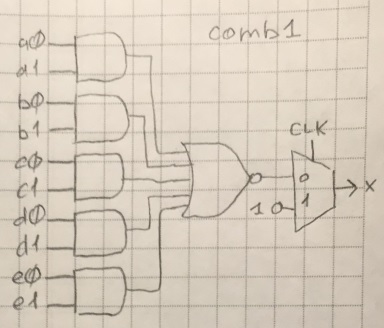 comb1
a0
a1
b0
b1
c0
c1
d0
d1
e0
e1
CLK
0
1
1
x